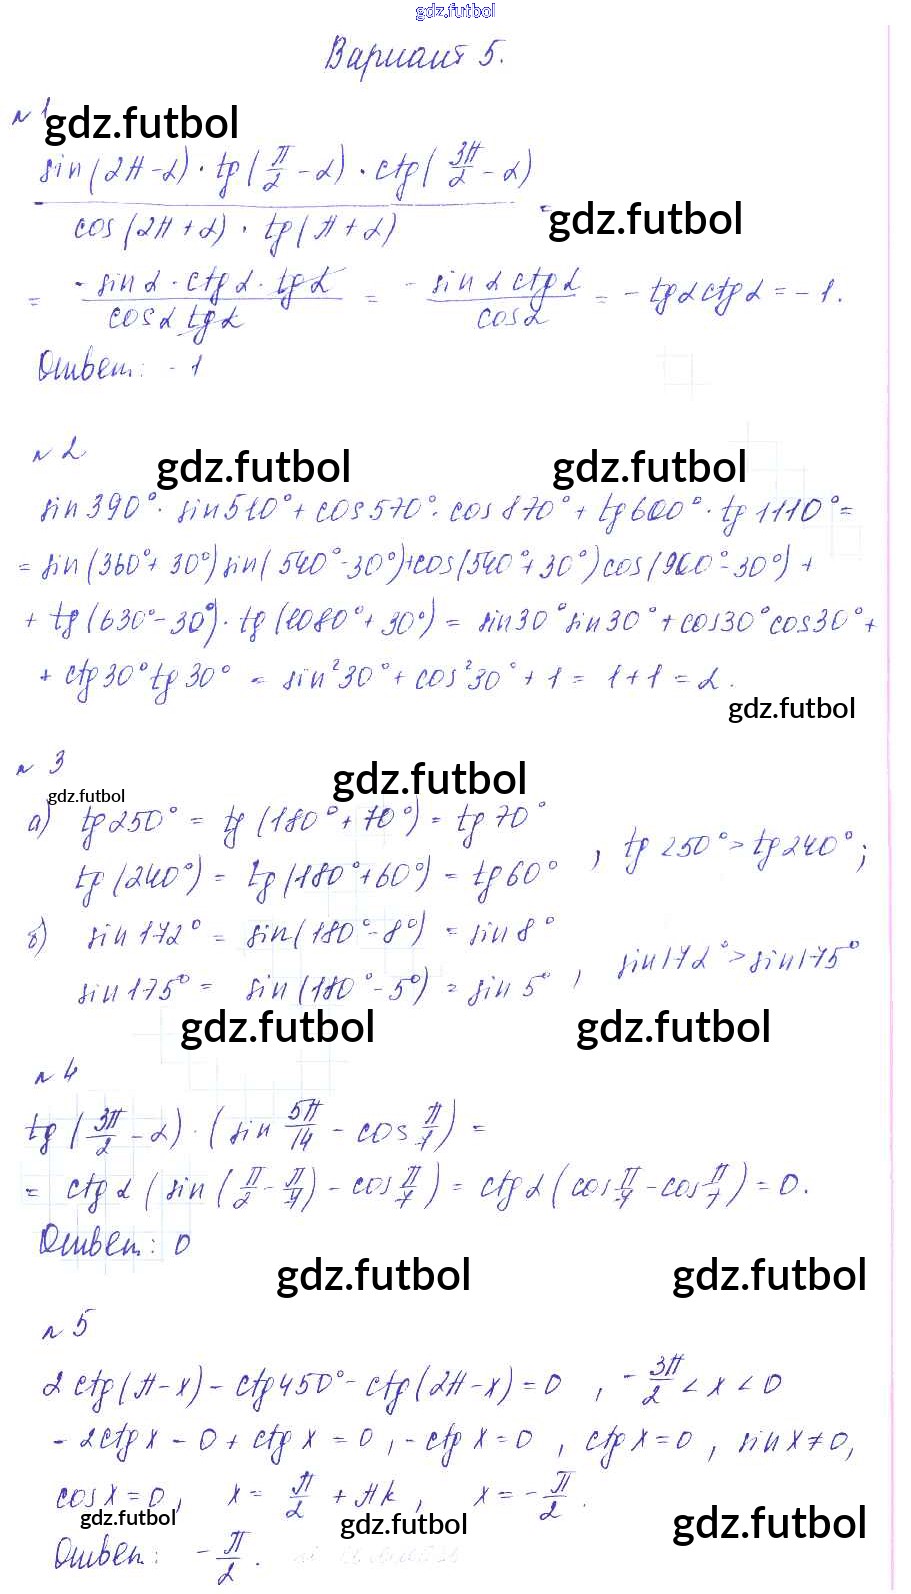 gdz.futbol
Вариант 5.
№1
gdz.futbol
sin(2π-α)·tg(π/2-α)·ctg(3π/2-α)
cos(2π+α)·tg(π+α) =
gdz.futbol
= -sinα·ctgα·tgα / cosα tgα = - sinα ctgα / cosα = -tgα ctgα = -1.
Ответ: -1
№2
gdz.futbol gdz.futbol
sin390°·sin510°+cos570°·cos870°+tg600°·tg1110°=
= sin(360°+30°)sin(540°-30°)+cos(540°+30°)cos(900°-30°)+
+ tg(630°-30°)·tg(1080°+30°) = sin30°sin30°+cos30°cos30°+
+ ctg30°tg30° = sin²30°+cos²30°+1 = 1+1=2.
gdz.futbol
№3
gdz.futbol
gdz.futbol
а) tg250° = tg(180°+70°) = tg70°
tg(240°) = tg(180°+60°) = tg60° , tg250°>tg240°;
б) sin172° = sin(180°-8°) = sin8°
sin175° = sin(180°-5°) = sin5° , sin172°>sin175°
gdz.futbol gdz.futbol
№4
tg(3π/2-α)·(sin 5π/14 - cos π/7) =
= ctgα(sin(π/2-π/7)-cos π/7) = ctgα(cos π/7-cos π/7)=0.
Ответ: 0
gdz.futbol gdz.futbol
№5
2ctg(π-x)-ctg450°-ctg(2π-x)=0 , -3π/2<x<0
-2ctgx-0+ctgx=0, -ctgx=0, ctgx=0, sinx≠0,
cosx=0, x=π/2+πk, x=-π/2.
gdz.futbol gdz.futbol gdz.futbol
Ответ: -π/2.